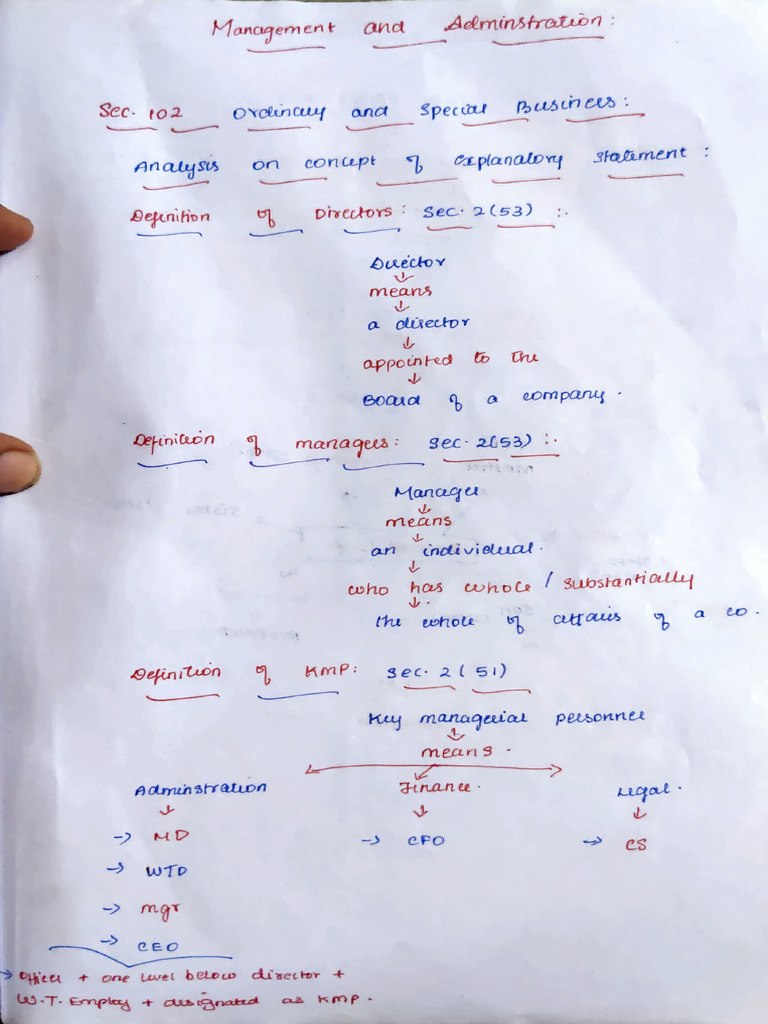 Management and Adminstration:
Sec. 102 Ordinary and Special Business:
Analysis on concept of Explanatory Statement:
Definition of Directors: Sec. 2(53) :.
Director
↓
means
↓
a director
↓
appointed to the
↓
Board of a company.
Definition of managers: Sec. 2(53) :.
Manager
↓
means
↓
an individual.
↓
who has whole / substantially
↓
the whole of affairs of a co.
Definition of KMP: Sec. 2(51)
Key managerial personnel
↓
means.
Adminstration Finance. Legal.
↓ ↓ ↓
→ MD → CFO → CS
→ WTD
→ mgr
→ CEO
→ Officer + one level below director +
W.T. Employ + designated as KMP.